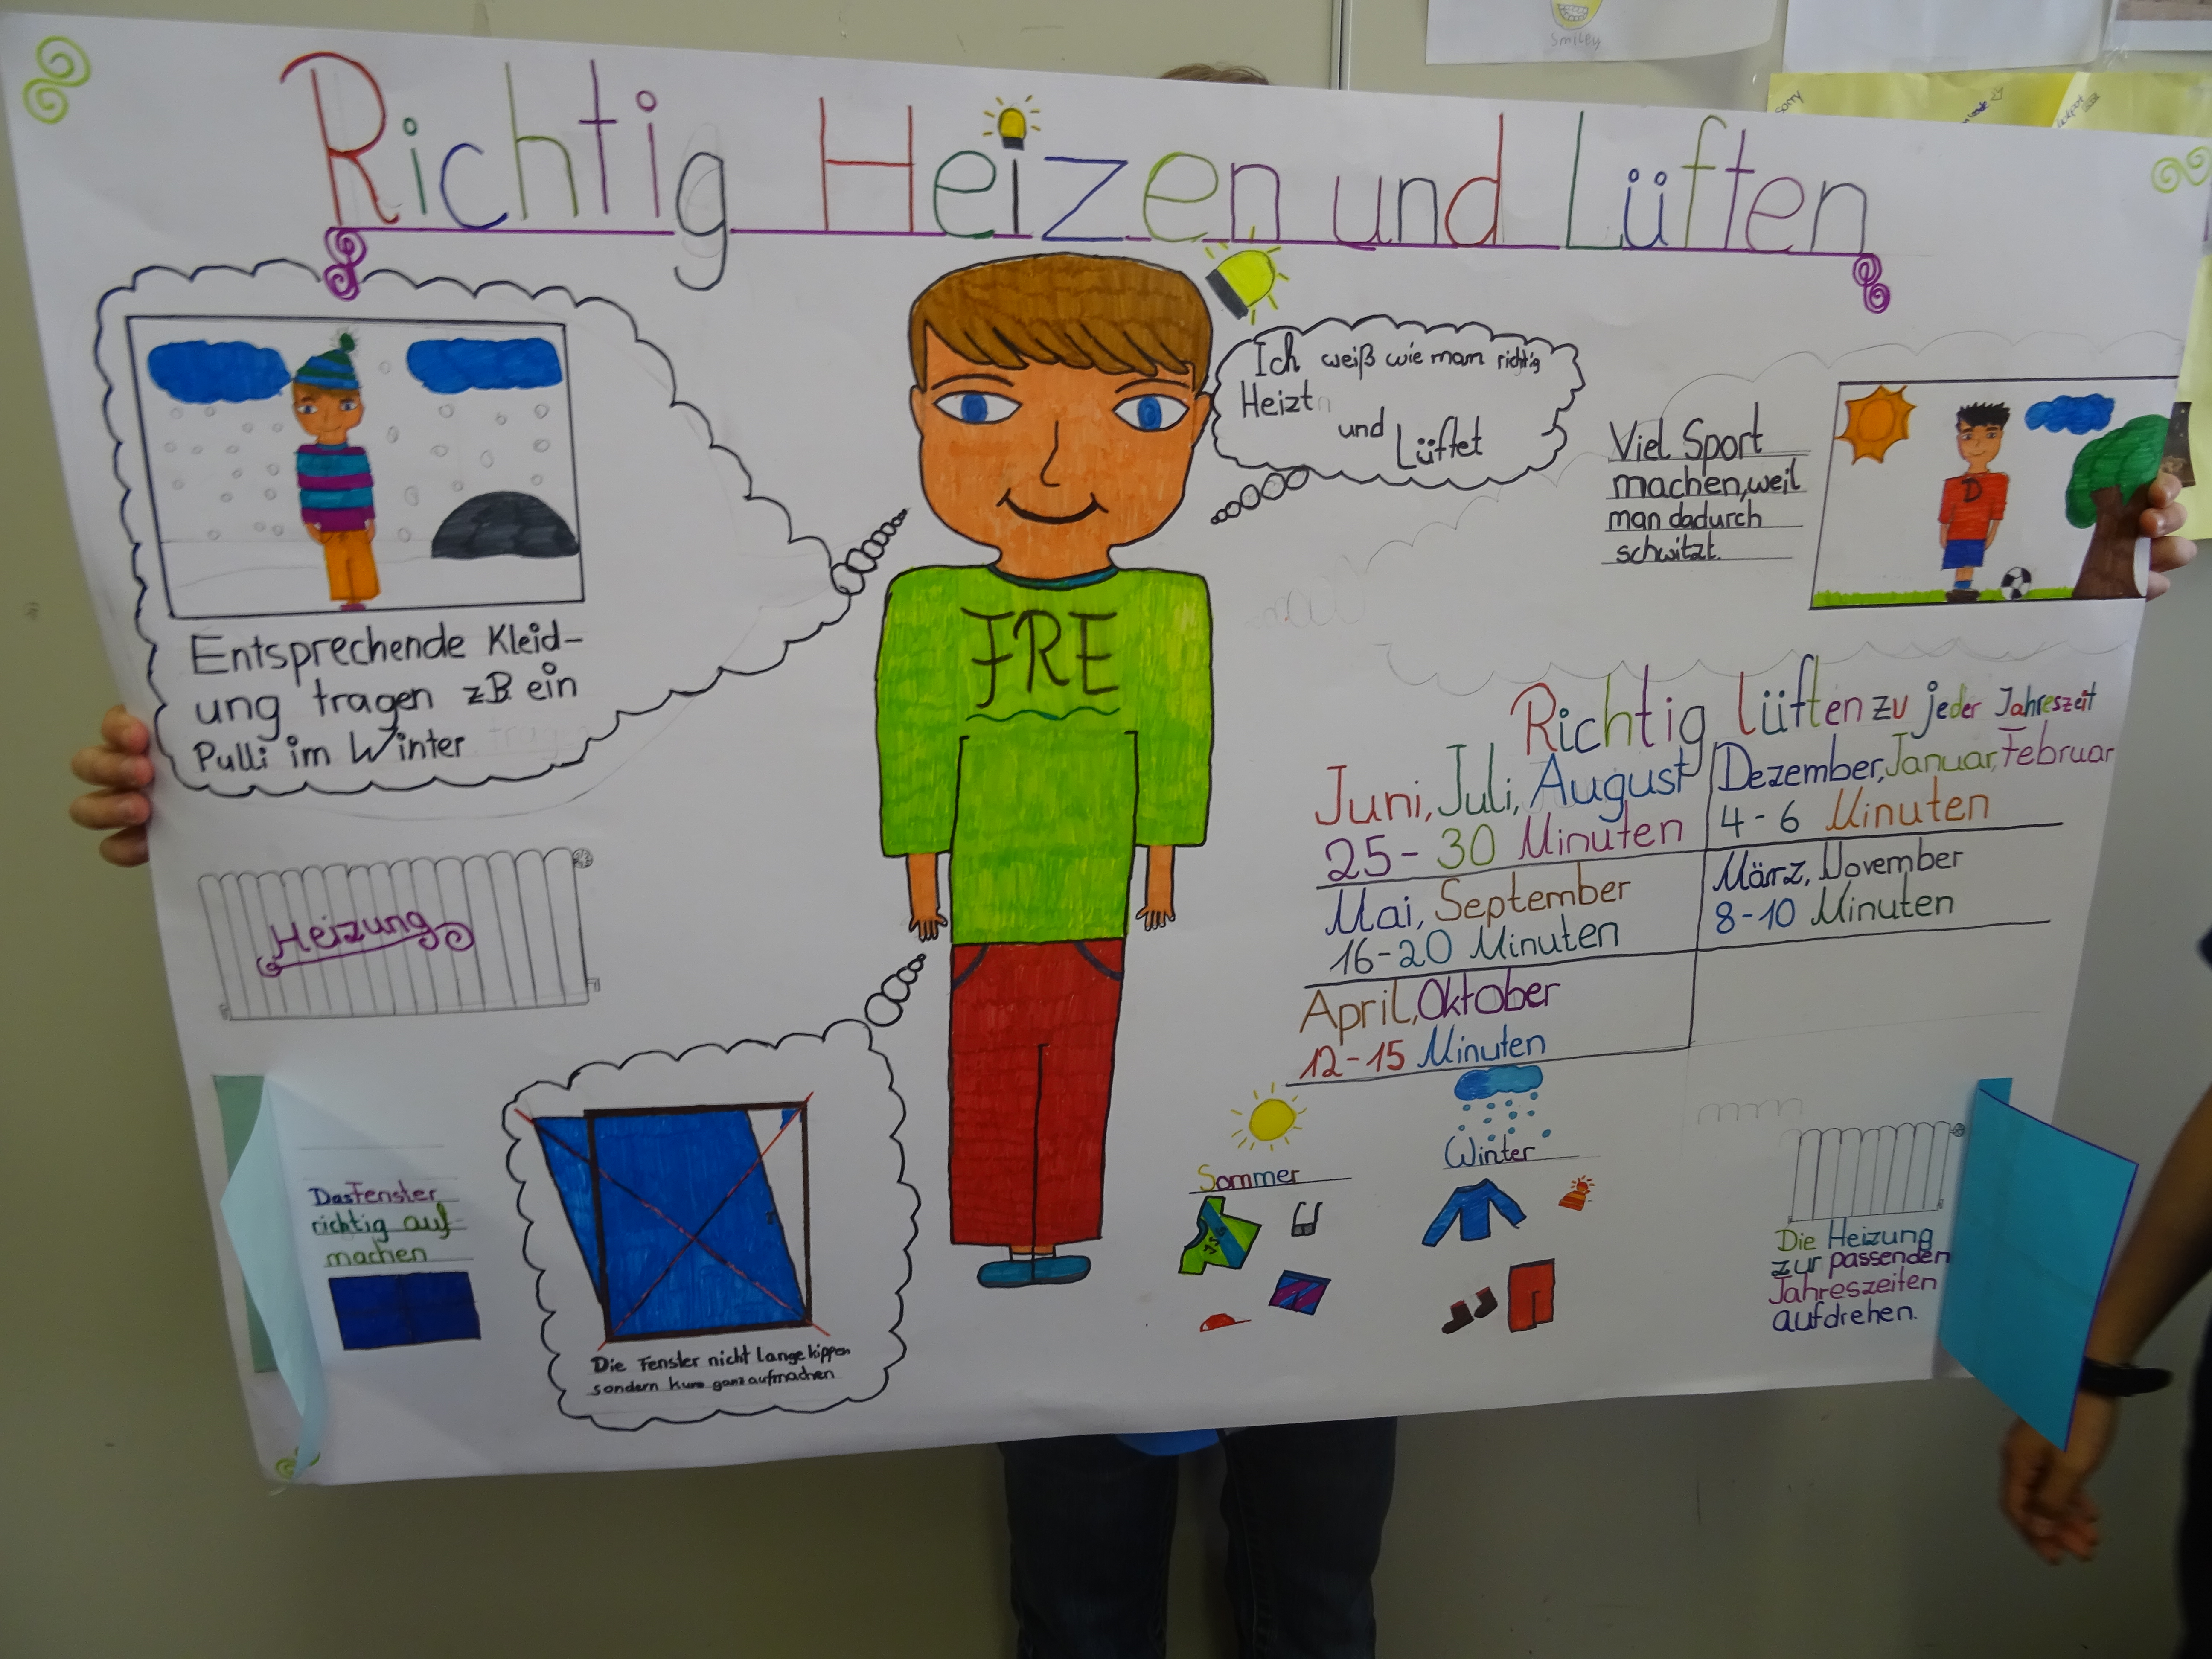 Smiley
Sorry
Richtig Heizen und Lüften
Ich weiß wie man richtig
Heizt
und
Lüftet
Viel Sport
machen, weil
man dadurch
schwitzt.
D
Entsprechende Kleid-
ung tragen zB ein
Pulli im Winter
FRE
Heizung
Richtig lüften zu jeder Jahreszeit
Juni, Juli, August
25-30 Minuten
Dezember, Januar, Februar
4-6 Minuten
Mai, September
16-20 Minuten
März, November
8-10 Minuten
April, Oktober
12-15 Minuten
Das Fenster
richtig auf-
machen
Die Fenster nicht lange kippen
sondern kurz ganz aufmachen
Sommer
Winter
Die Heizung
zur passenden
Jahreszeiten
aufdrehen.